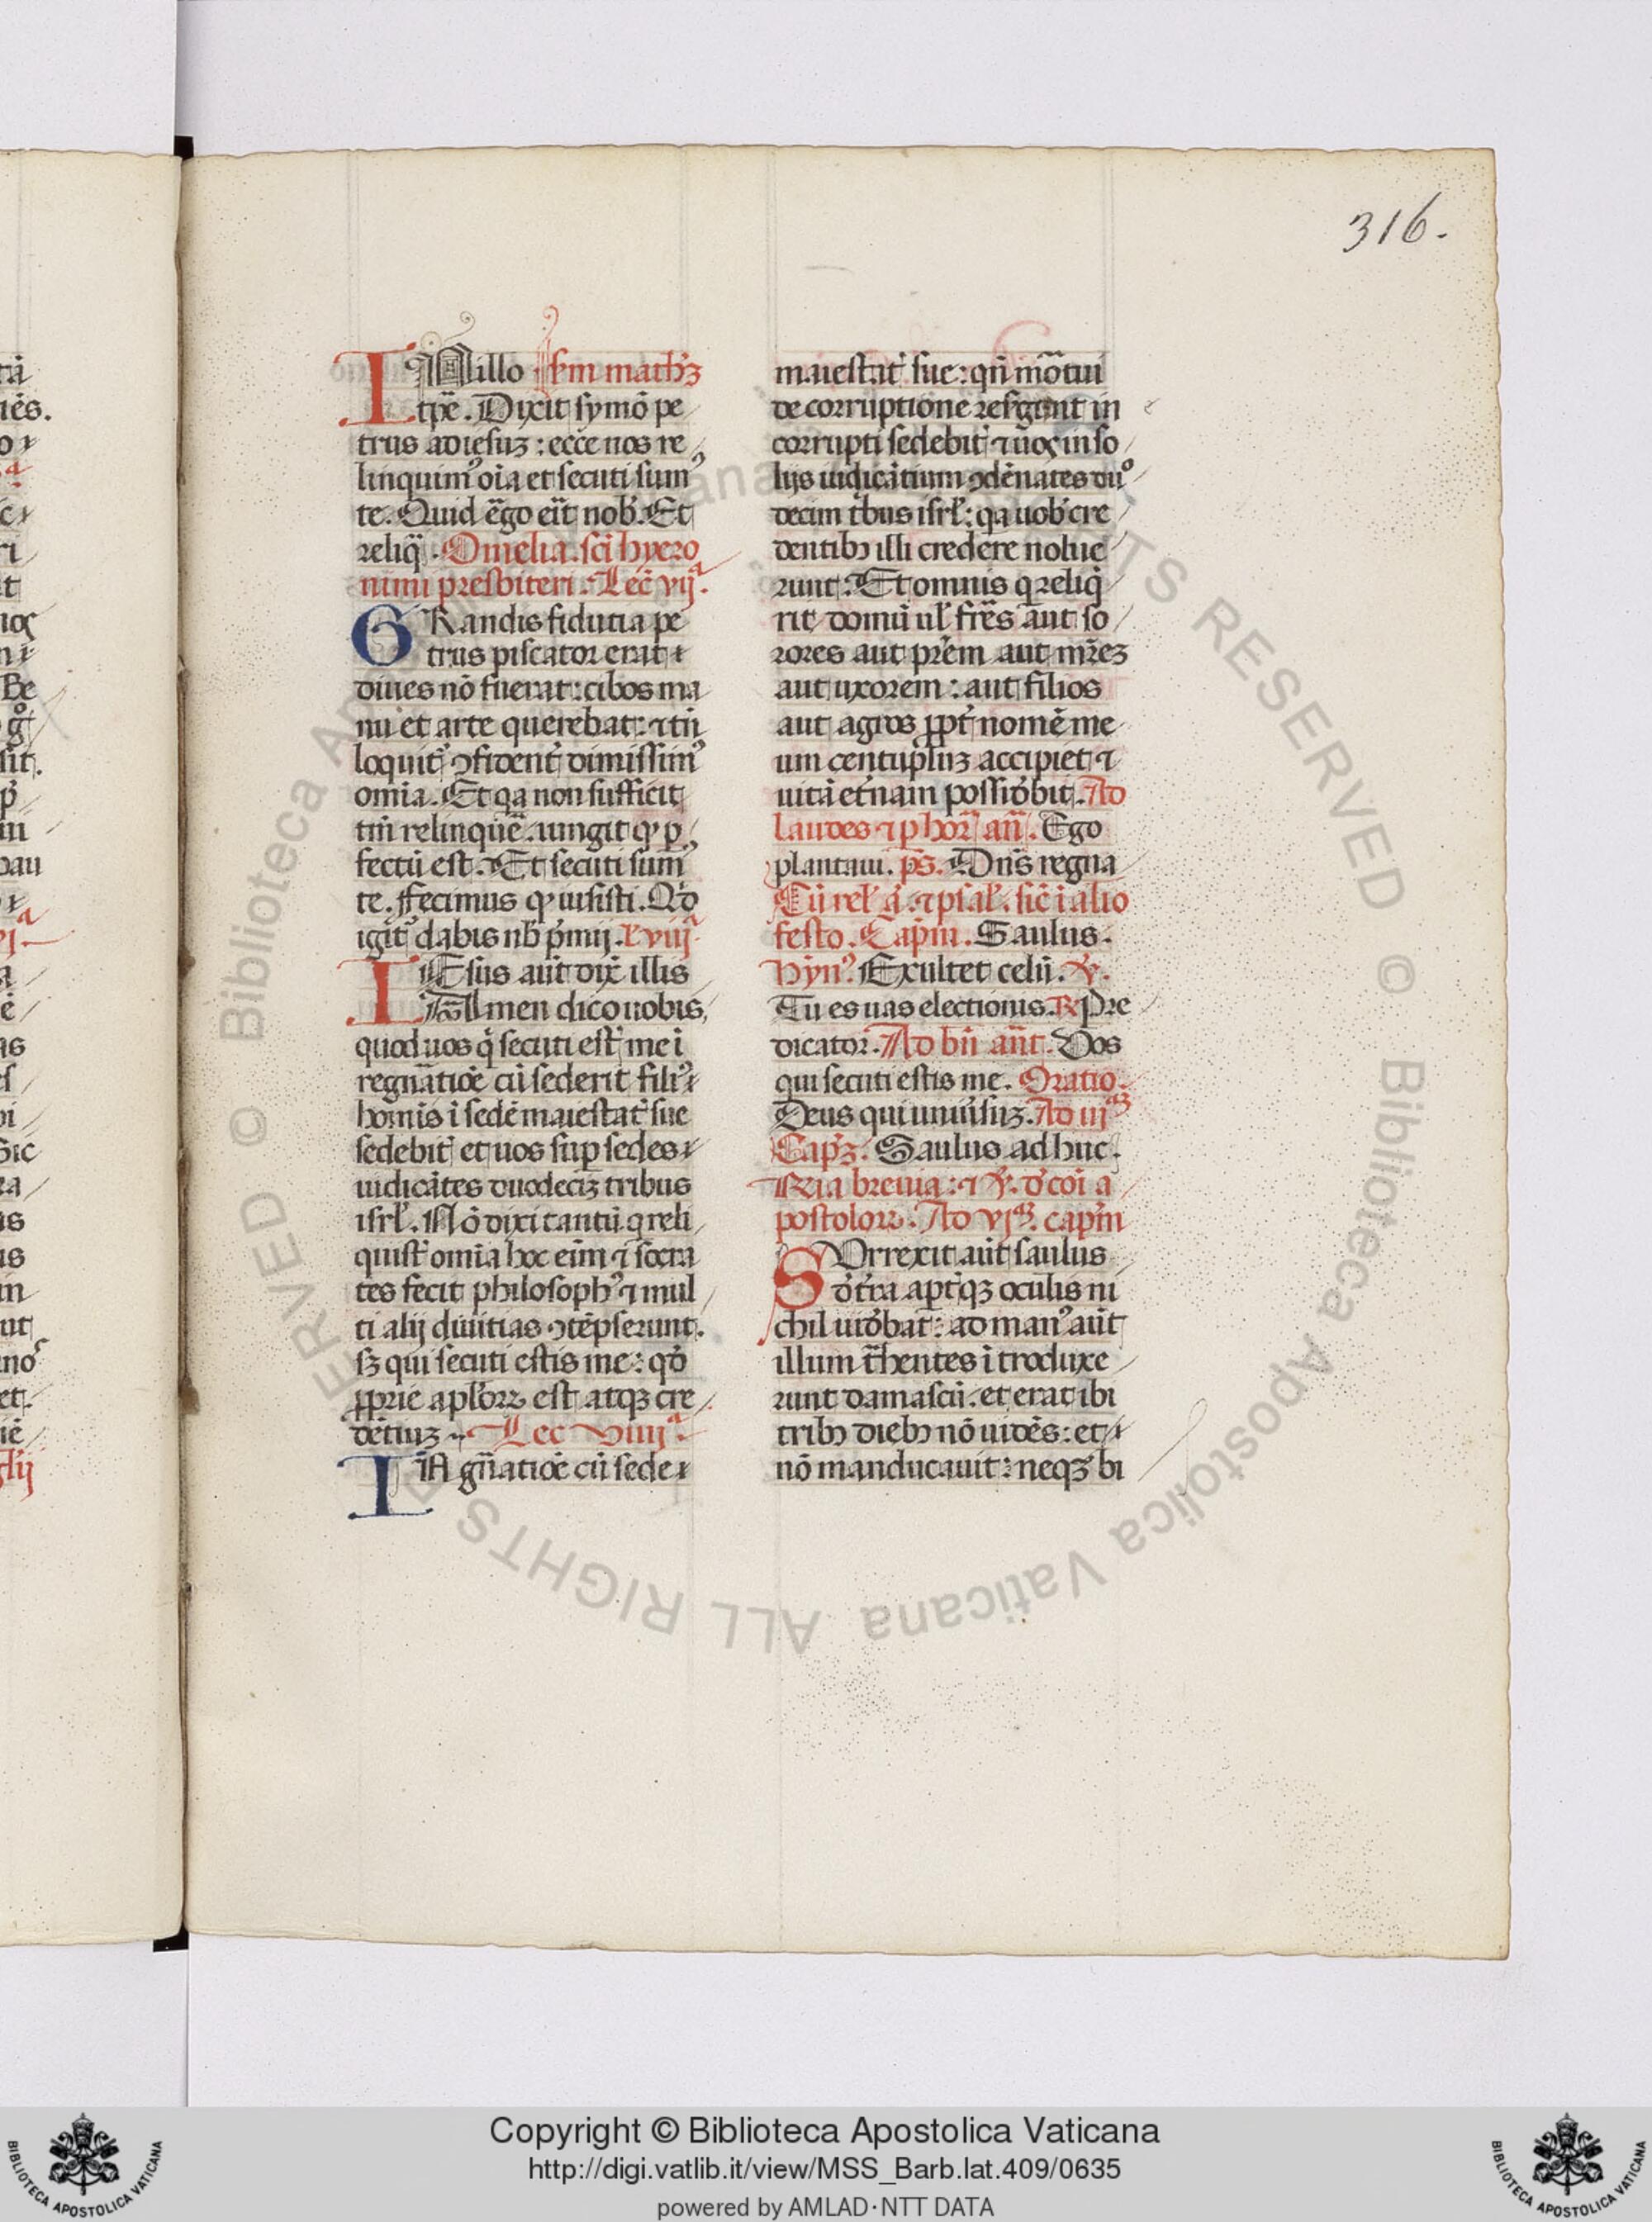 316.
IN illo scdm mathez
tpe. Dixit symō pe
trus ad iesuz: ecce nos re
linquim⁹ oīa et secuti sum⁹
te. Quid ēgo eīt nob̕. Et
reliq̄. Omelia. sc̄i hyero
nimi presbiteri. Lec̄ vijᵃ.
GRandis fidutia pe
trus piscator erat
diues nō fuerat: cibos ma
nu et arte querebat: ⁊ tn̄
loquit᷑ ꝯfident᷑ dimissim⁹
omīa. Et qa non sufficit
tm̄ relinque᷑. iungit qꝫ ꝑ
fectū est. Et secuti sum⁹
te. Fecimus qꝫ iusisti. Qd̕
igit᷑ dabis nb̄ p̄mij. l̕ viijᵃ
IEsus aūt dix̄ illis
Amen dico uobis,
quod uos q̕ secuti est᷑ me ī
regn̄atiōe cū sederit fili⁹
homīs ī sedē maiestat᷑ sue
sedebit᷑ et uos suꝑ sedes
iudicātes duodeciz tribus
isrl̕. Nō dixi tantū. q reli
quist᷑ omīa hoc eīm ⁊ socra
tes fecit philosoph⁹ ⁊ mul
ti alij diuitias ꝯtēpserunt.
sꝫ qui secuti estis me: qd̕
ꝓprie apl̕oꝝ est atqꝫ cre
dētiuz. Lec̄ viiijᵃ.
IN gn̄atiōe cū sede
maiestat᷑ sue: qn̄ mōtui
de corruptione resgunt in
corrupti sedebit᷑ ⁊ uos in so
lijs iudicātium ꝯdēnātes du⁰
decim tbus isrl̕: qa uob̕ cre
dentibꝫ illi credere nolue
runt: Et omnis q reliq̄
rit domū ul̕ fr̄es aut so
rores aut pr̄em aut mr̄ez
aut uxorem: aut filios
aut agros ꝓpt᷑ nomē me
um centupluz accipiet ⁊
uitā et᷑nam possid̕bit. Ad
laudes ⁊ ꝑ hor̄ an̄. Ego
plantaui. ps̄. Dn̄s regna
Cū rel̕ a̕. ⁊ psal̕. sic̄ ī alio
festo. Capm̄. Saulus.
Hyn⁹. Exultet celū. ℣.
Tu es uas electionis. ℟ Pre
dicator. Ad bn̄ ant̄. Vos
qui secuti estis me. Oratio.
Deus qui uniūsuz. Ad iijᵃᵐ
Capꝫ. Saulus ad huc.
℟ia breuia: ⁊ ℣. d̕ coī a
postoloꝝ. Ad vjᵃᵐ. capm̄
SVrrexit aūt saulus
d̕ t᷑ra aptisqꝫ oculis ni
chil uid̕bat: ad man⁹ aūt
illum t᷑hentes ītroduxe
runt damascū. et erat ibi
tribꝫ diebꝫ nō uidēs: et
nō manducauit: neqꝫ bi
Copyright © Biblioteca Apostolica Vaticana
http://digi.vatlib.it/view/MSS_Barb.lat.409/0635
powered by AMLAD·NTT DATA